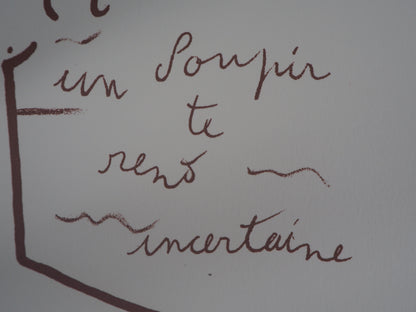 un Soupir
te
rend
incertaine